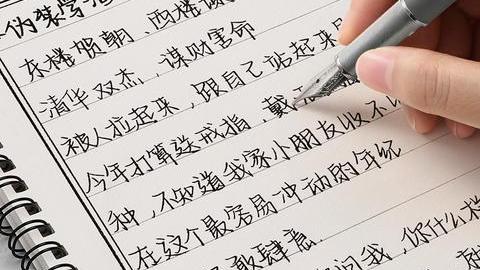 伪装学
东楼贺朝、西楼
清华双杰，谋财害命
被人拉起来，跟自己站起来
今年打算送戒指，戴
种，不知道我家小朋友收不
在这个最容易冲动的年纪
敢肆意
问我 你什么